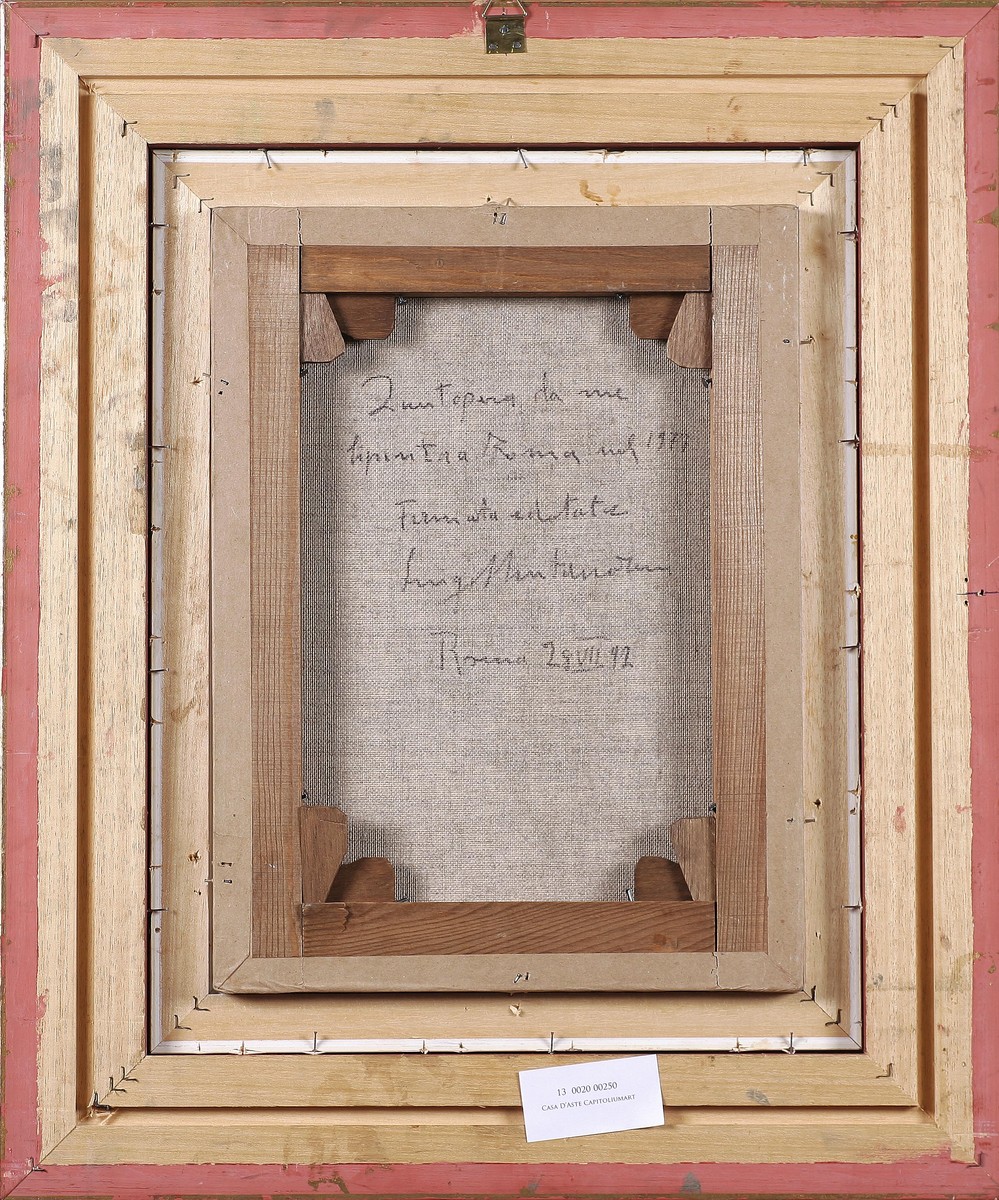 Quest'opera da me
dipinta a Roma nel 1977
Firmata e datata
Luigi Montanarini
Roma 28 VII 92
13 0020 00250
CASA D'ASTE CAPITOLIUMART